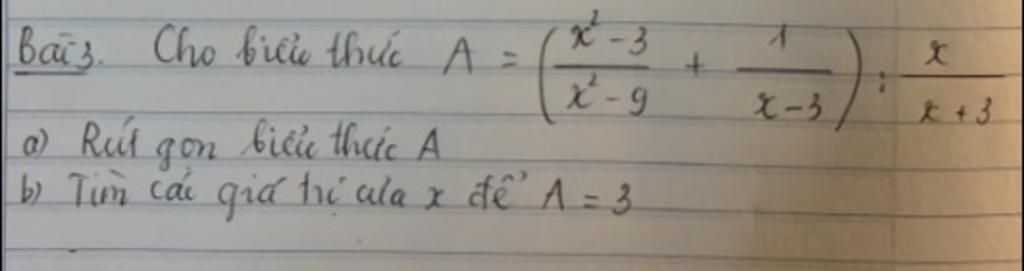 Bài 3. Cho biểu thức A = (x² - 3 / x² - 9 + 1 / x - 3) : x / x + 3
a) Rút gọn biểu thức A
b) Tìm các giá trị của x để A = 3